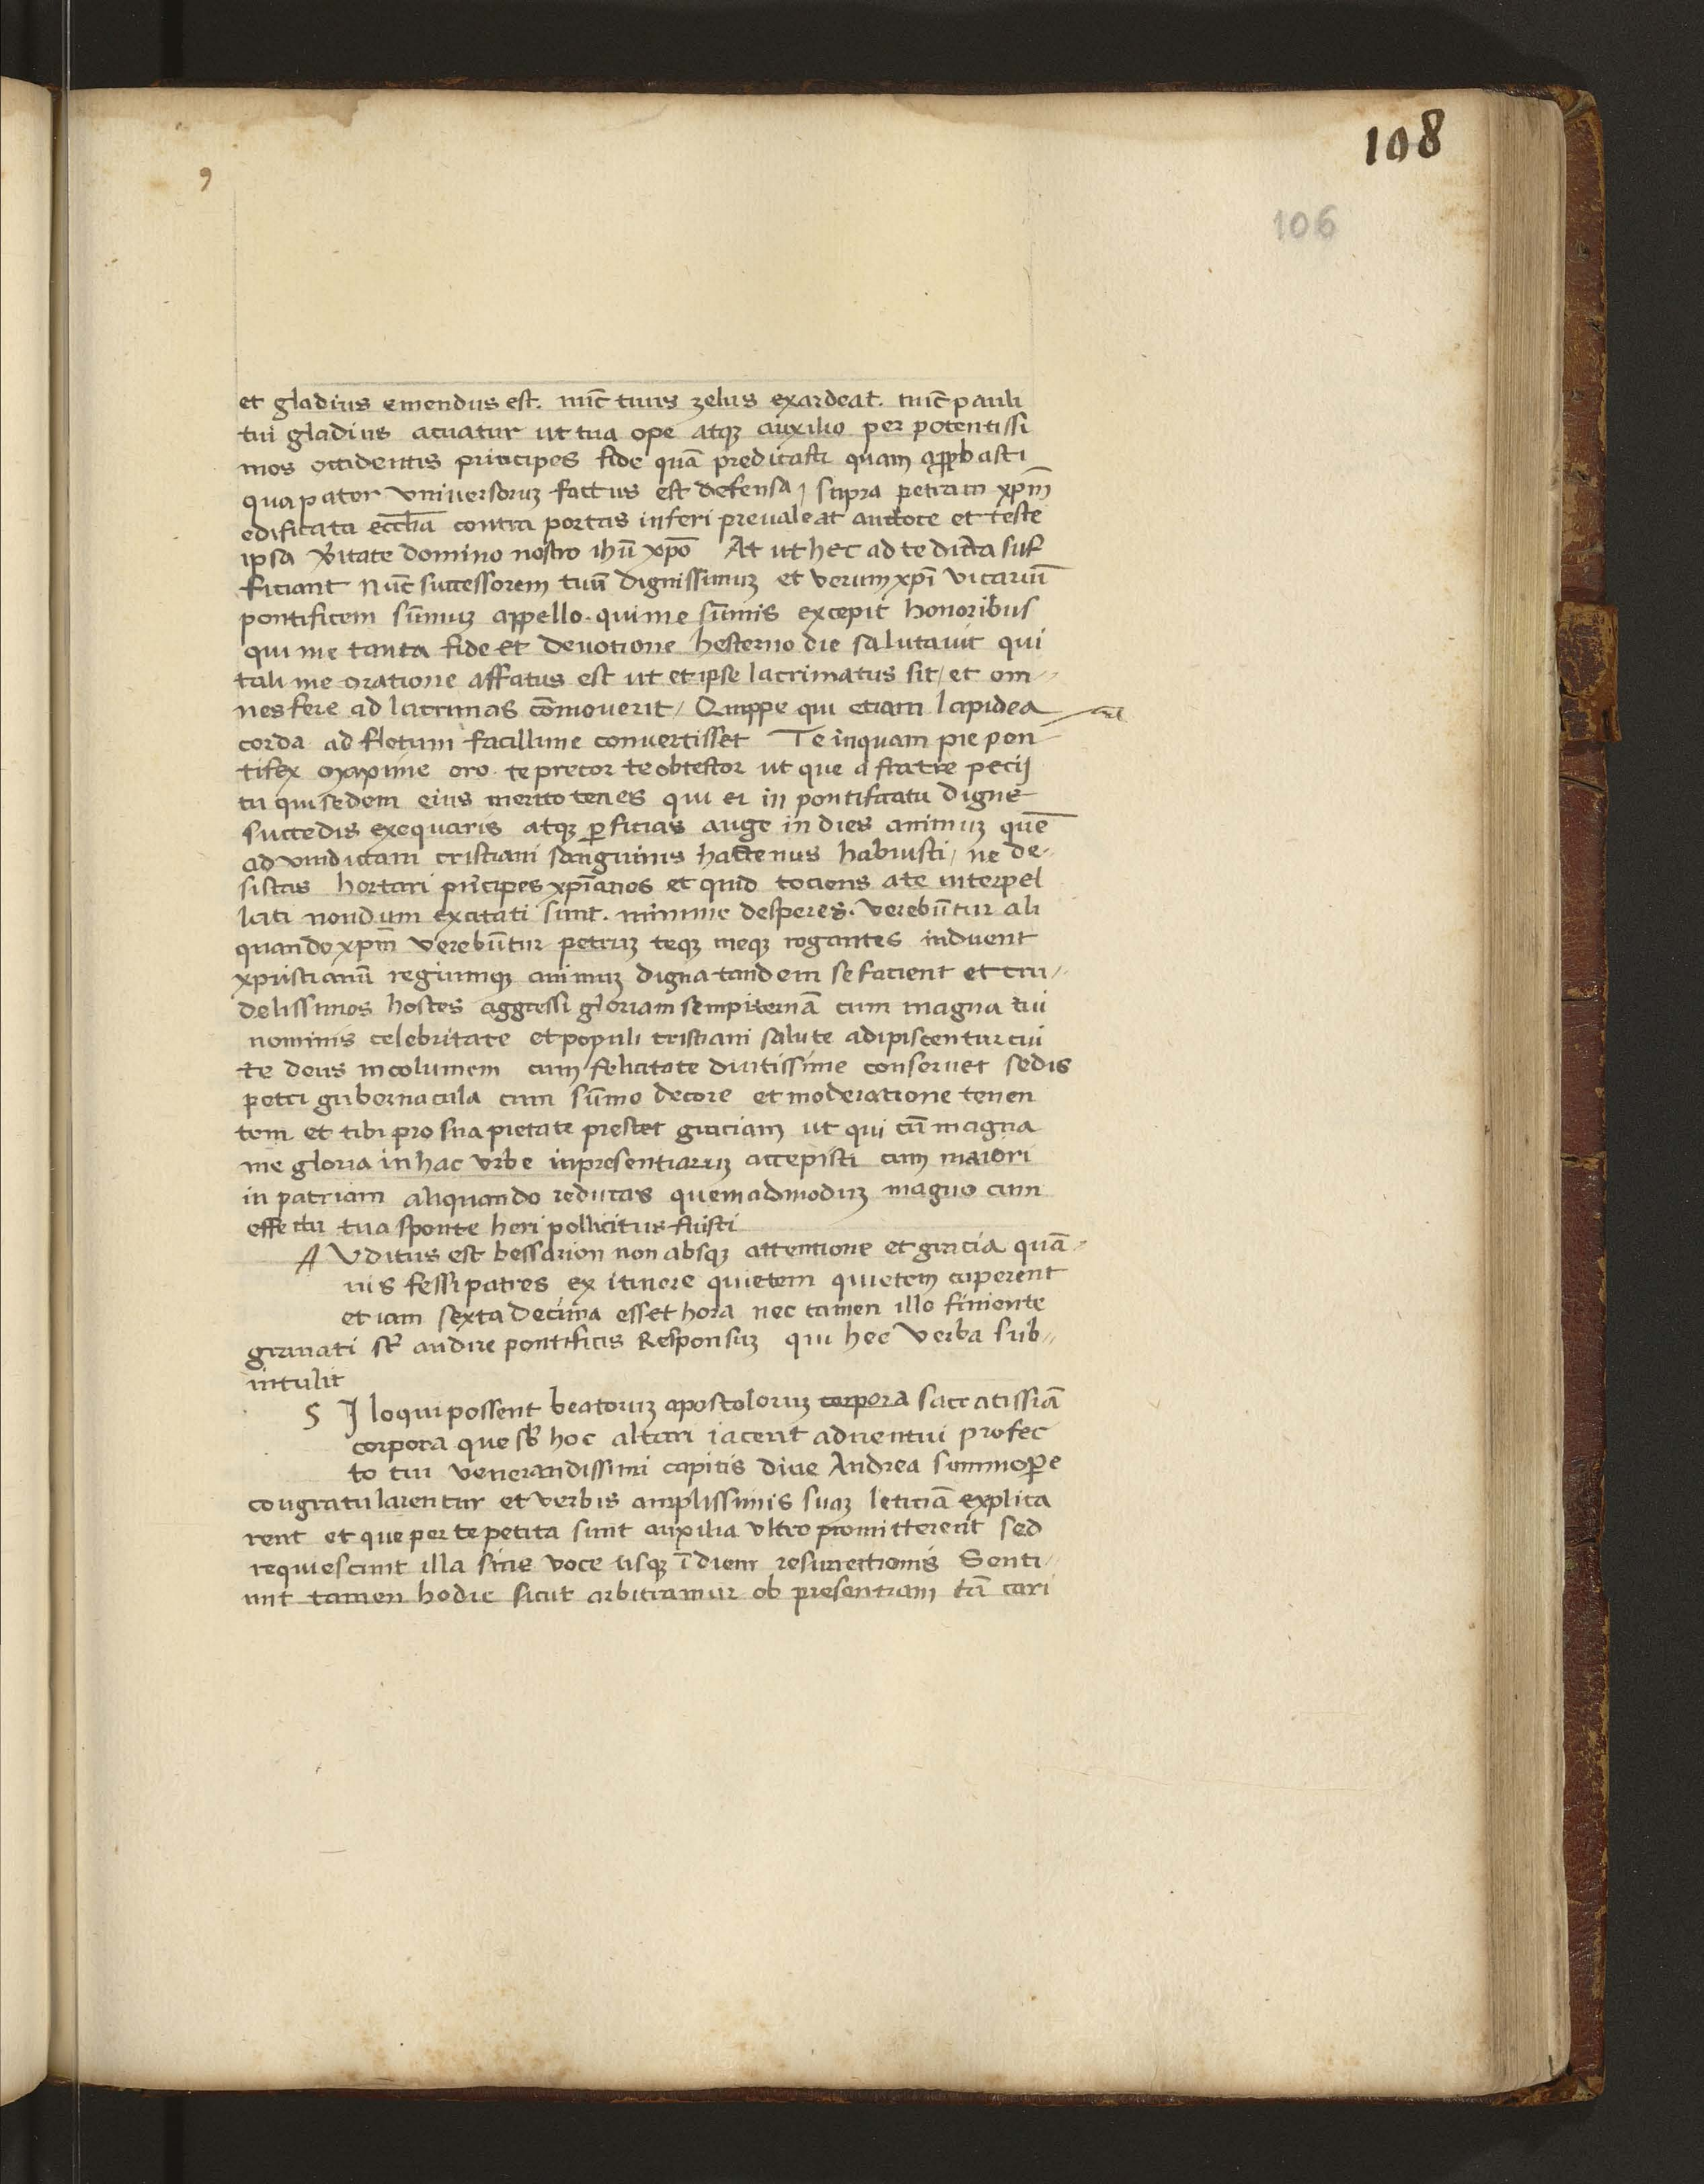 108
106
et gladius emendus est. nūc tuus zelus exardeat. nūc pauli
tui gladius acuatur ut tua ope atqꝫ auxilio per potentissi
mos occidentis principes fide quā predicasti quam approbasti
qua pater vniversoruꝫ factus est defensa, supra petram xp̄m
edificata eccl̄ia contra portas inferi prevaleat auctore et teste
ipsa v̄itate domino nostro ihū xp̄o At ut hec ad te dicta suf
ficiant Nūc successorem tuū dignissimuꝫ et verum xp̄i vicariū
pontificem sūmuꝫ appello. qui me sūmis excepit honoribus
qui me tanta fide et devotione hesterno die salutavit qui
tali me oratione affatus est ut et ipse lacrimatus sit / et om
nes fere ad lacrimas cōmoverit / Quippe qui etiam lapidea
corda ad fletum facillime convertisset Te inquam pie pon
tifex maxime oro. te precor te obtestor ut que a fratre pecij
tu qui sedem eius merito tenes qui ei in pontificatu digne
succedis exequaris atqꝫ ꝑficias auge in dies animuꝫ quē
ad vindictam cristiani sanguinis hactenus habuisti / ne de
sistas hortari pricipes xp̄ianos et quid tociens a te interpel
lati nondum excitati sunt. minime desperes. verebūtur ali
quando xp̄m verebūtur petruꝫ teqꝫ meqꝫ rogantes induent
xpistianū regiumqꝫ animuꝫ digna tandem se facient et cru
delissimos hostes aggressi gloriam sempiternā cum magna tui
nominis celebritate et populi cristiani salute adipiscentur cui
te deus incolumem cum felicitate diutissime conservet sedis
petri gubernacula cum sūmo decore et moderatione tenen
tem et tibi pro sua pietate prestet graciam ut qui cū magna
me gloria in hac vrbe inpresentiaruꝫ accepisti cum maiori
in patriam aliquando reducas quemadmoduꝫ magno cum
effectu tua sponte heri pollicitus fuisti
A Vditus est bessarion non absqꝫ attentione et gracia quā
uis fessi patres ex itinere quietem quietem cuperent
et iam sexta decima esset hora nec tamen illo finiente
gravati sūt audire pontificis Responsuꝫ qui hec verba sub
intulit
S I loqui possent beatoruꝫ apostoloruꝫ corpora sacratissiā
corpora que sb̄ hoc altari iacent adventui profec
to tui venerandissimi capitis diue Andrea summoꝑe
congratularentur et verbis amplissimis suaꝫ leticiā explica
rent et que per te petita sunt auxilia vltro promitterent sed
requiescunt illa sine voce usqꝫ ī diem resurrectionis Senti
unt tamen hodie sicut arbitramur ob presentiam tā cari